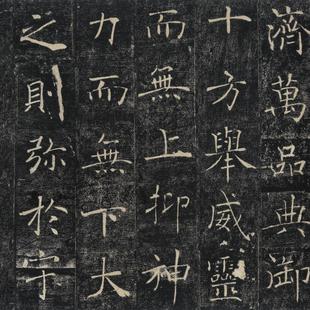 濟萬品典御
十方舉威靈
而無上抑神
力而無下大
之則弥於宇